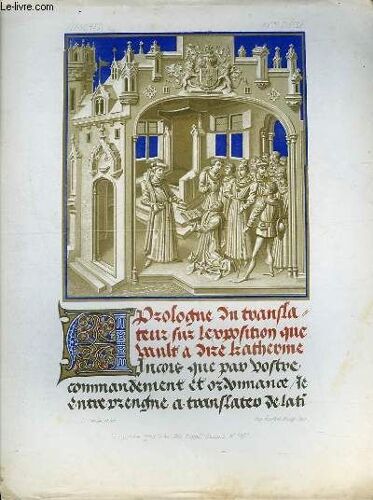 © Le-Livre.com
Prologue du transla-
teur sur lexposition que
vault a dire katherine
Incois que par vostre
commandement et ordonnance ie
entreprengne a translater de lati